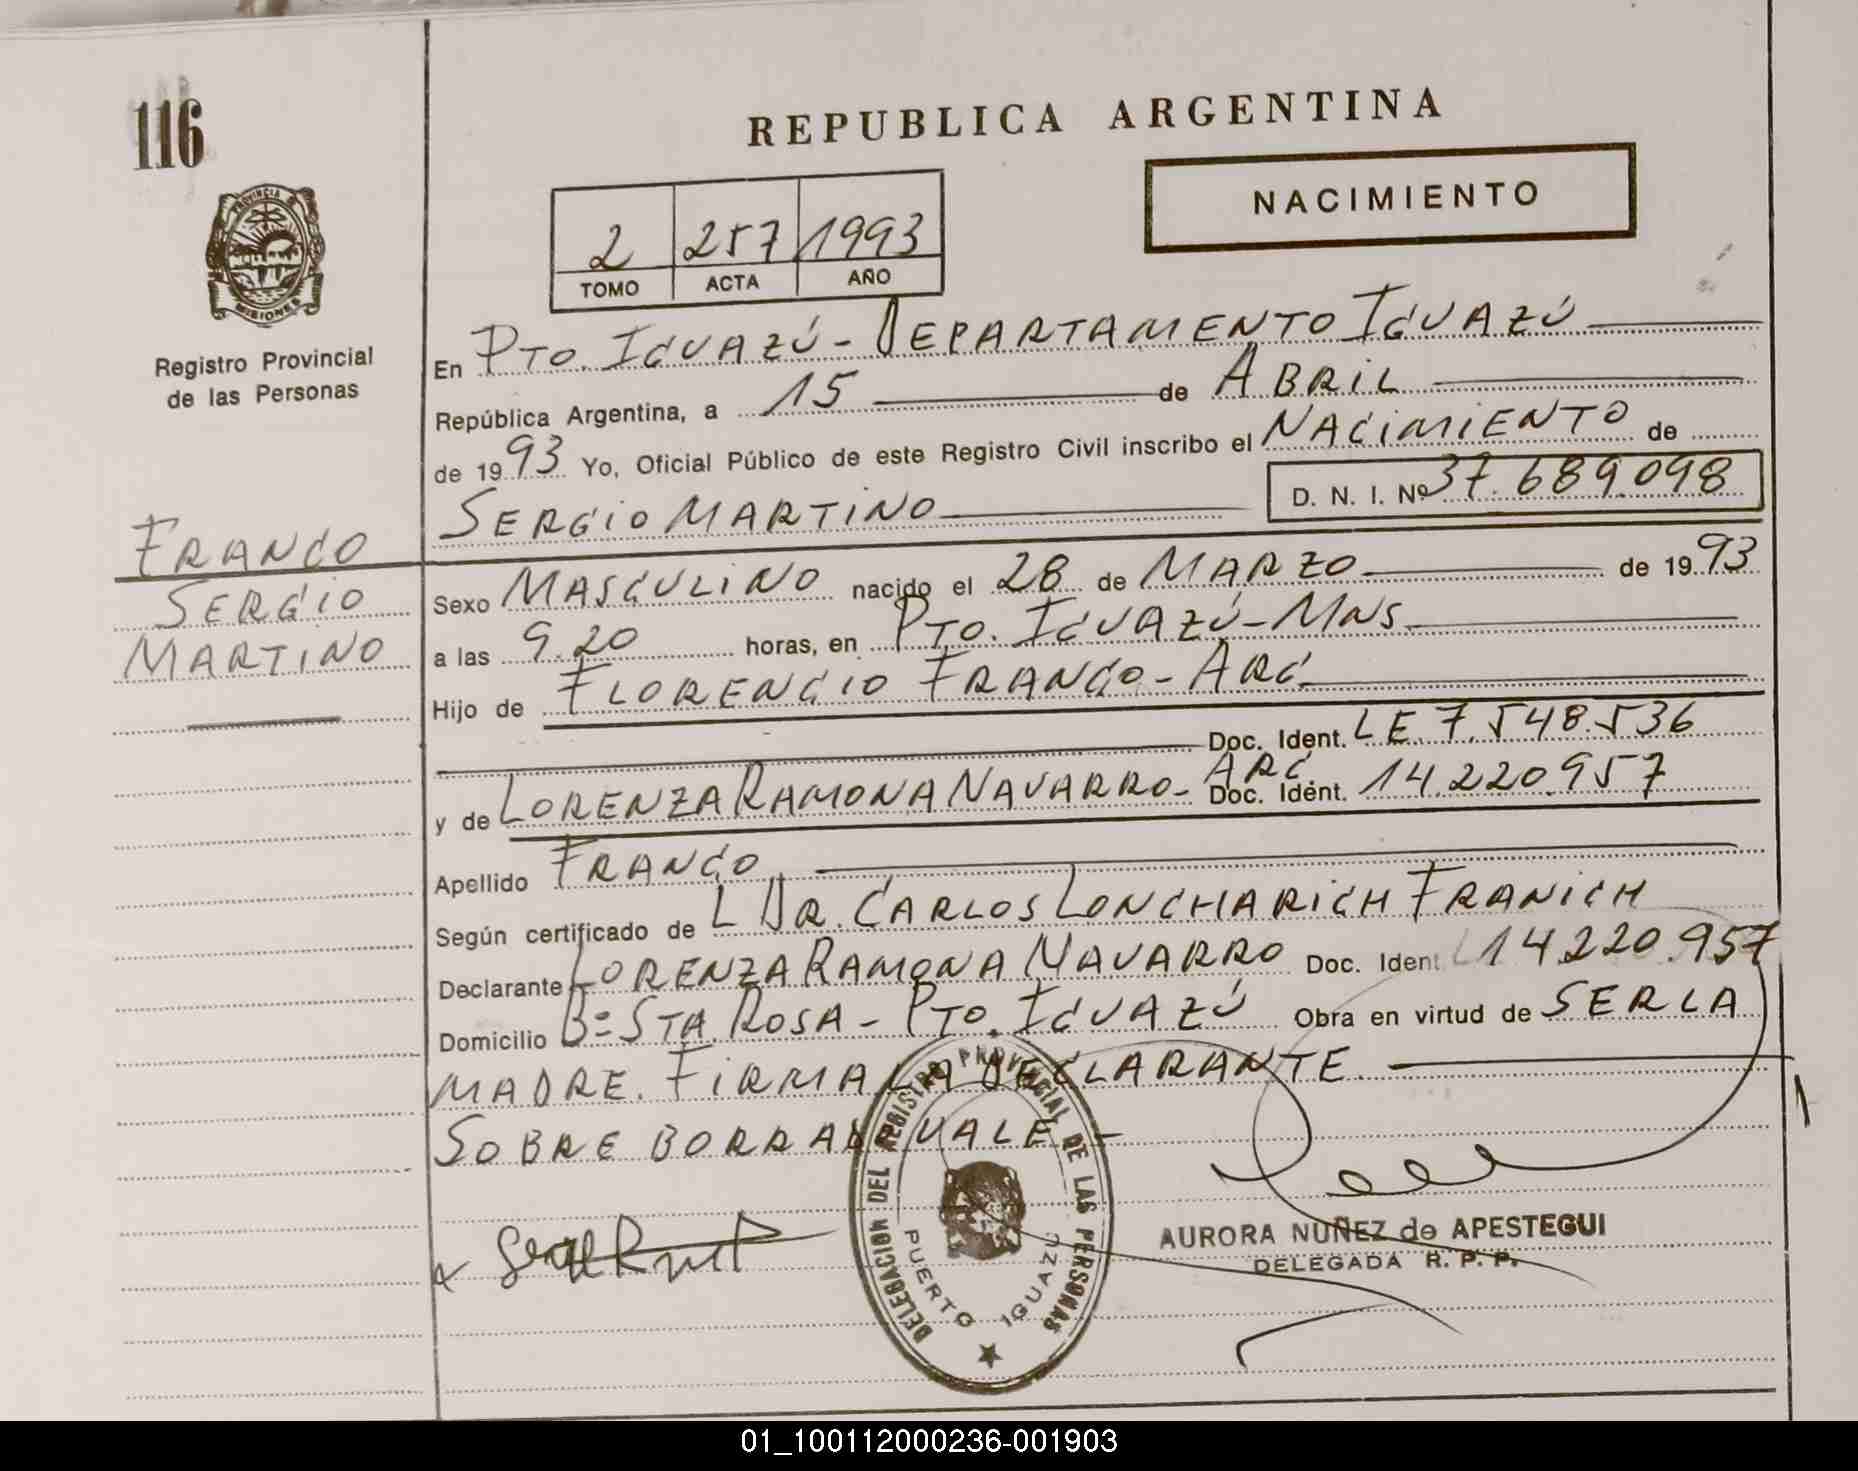 116
REPUBLICA ARGENTINA
NACIMIENTO
PROVINCIA DE
MISIONES
Registro Provincial
de las Personas
2 257 1993
TOMO ACTA AÑO
En PTO. IGUAZÚ - DEPARTAMENTO IGUAZÚ
República Argentina, a 15 de ABRIL
de 1993 Yo, Oficial Público de este Registro Civil inscribo el NACIMIENTO de
SERGIO MARTINO D. N. I. Nº 37.689.098
FRANCO
SERGIO
MARTINO
Sexo MASCULINO nacido el 28 de MARZO de 1993
a las 9.20 horas, en PTO. IGUAZÚ - MNS.
Hijo de FLORENCIO FRANCO - ARG.
Doc. Ident. LE. 7.548.536
y de LORENZA RAMONA NAVARRO - ARG. Doc. Ident. 14.220.957
Apellido FRANCO
Según certificado de L DR. CARLOS LONCHARICH FRANICH
Declarante LORENZA RAMONA NAVARRO Doc. Ident. 14.220.957
Domicilio Bº STA. ROSA - PTO. IGUAZÚ Obra en virtud de SER LA
MADRE. FIRMA LA DECLARANTE.
SOBRE BORRADO VALE -
DELEGACION DEL REGISTRO PROVINCIAL DE LAS PERSONAS
PUERTO IGUAZU
AURORA NUÑEZ de APESTEGUI
DELEGADA R. P. P.
01_100112000236-001903